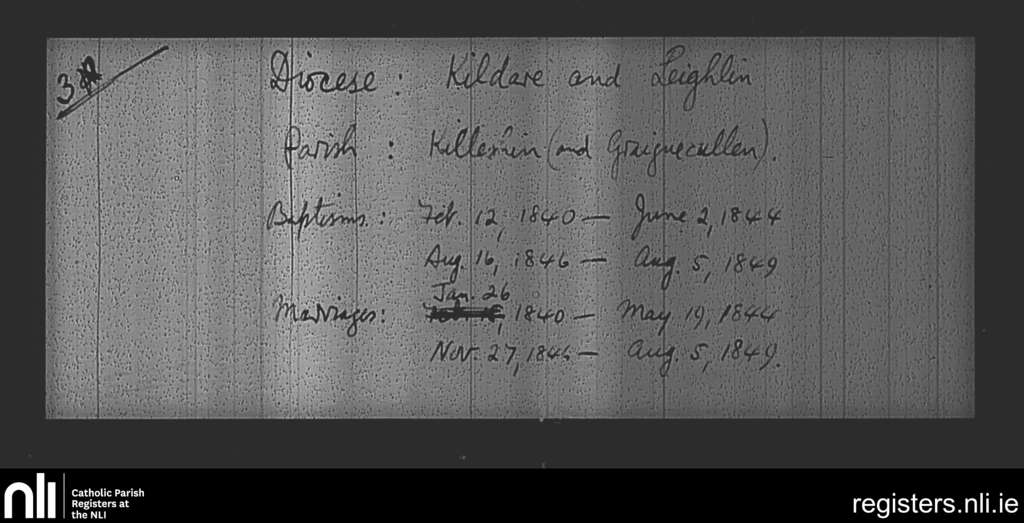 3
Diocese : Kildare and Leighlin
Parish : Killeshin (and Graiguecullen).
Baptisms : Feb. 12, 1840 — June 2, 1844
Aug. 16, 1846 — Aug. 5, 1849
Jan. 26
Marriages : 1840 — May 19, 1844
Nov. 27, 1846 — Aug. 5, 1849.
nli
Catholic Parish
Registers at
the NLI
registers.nli.ie